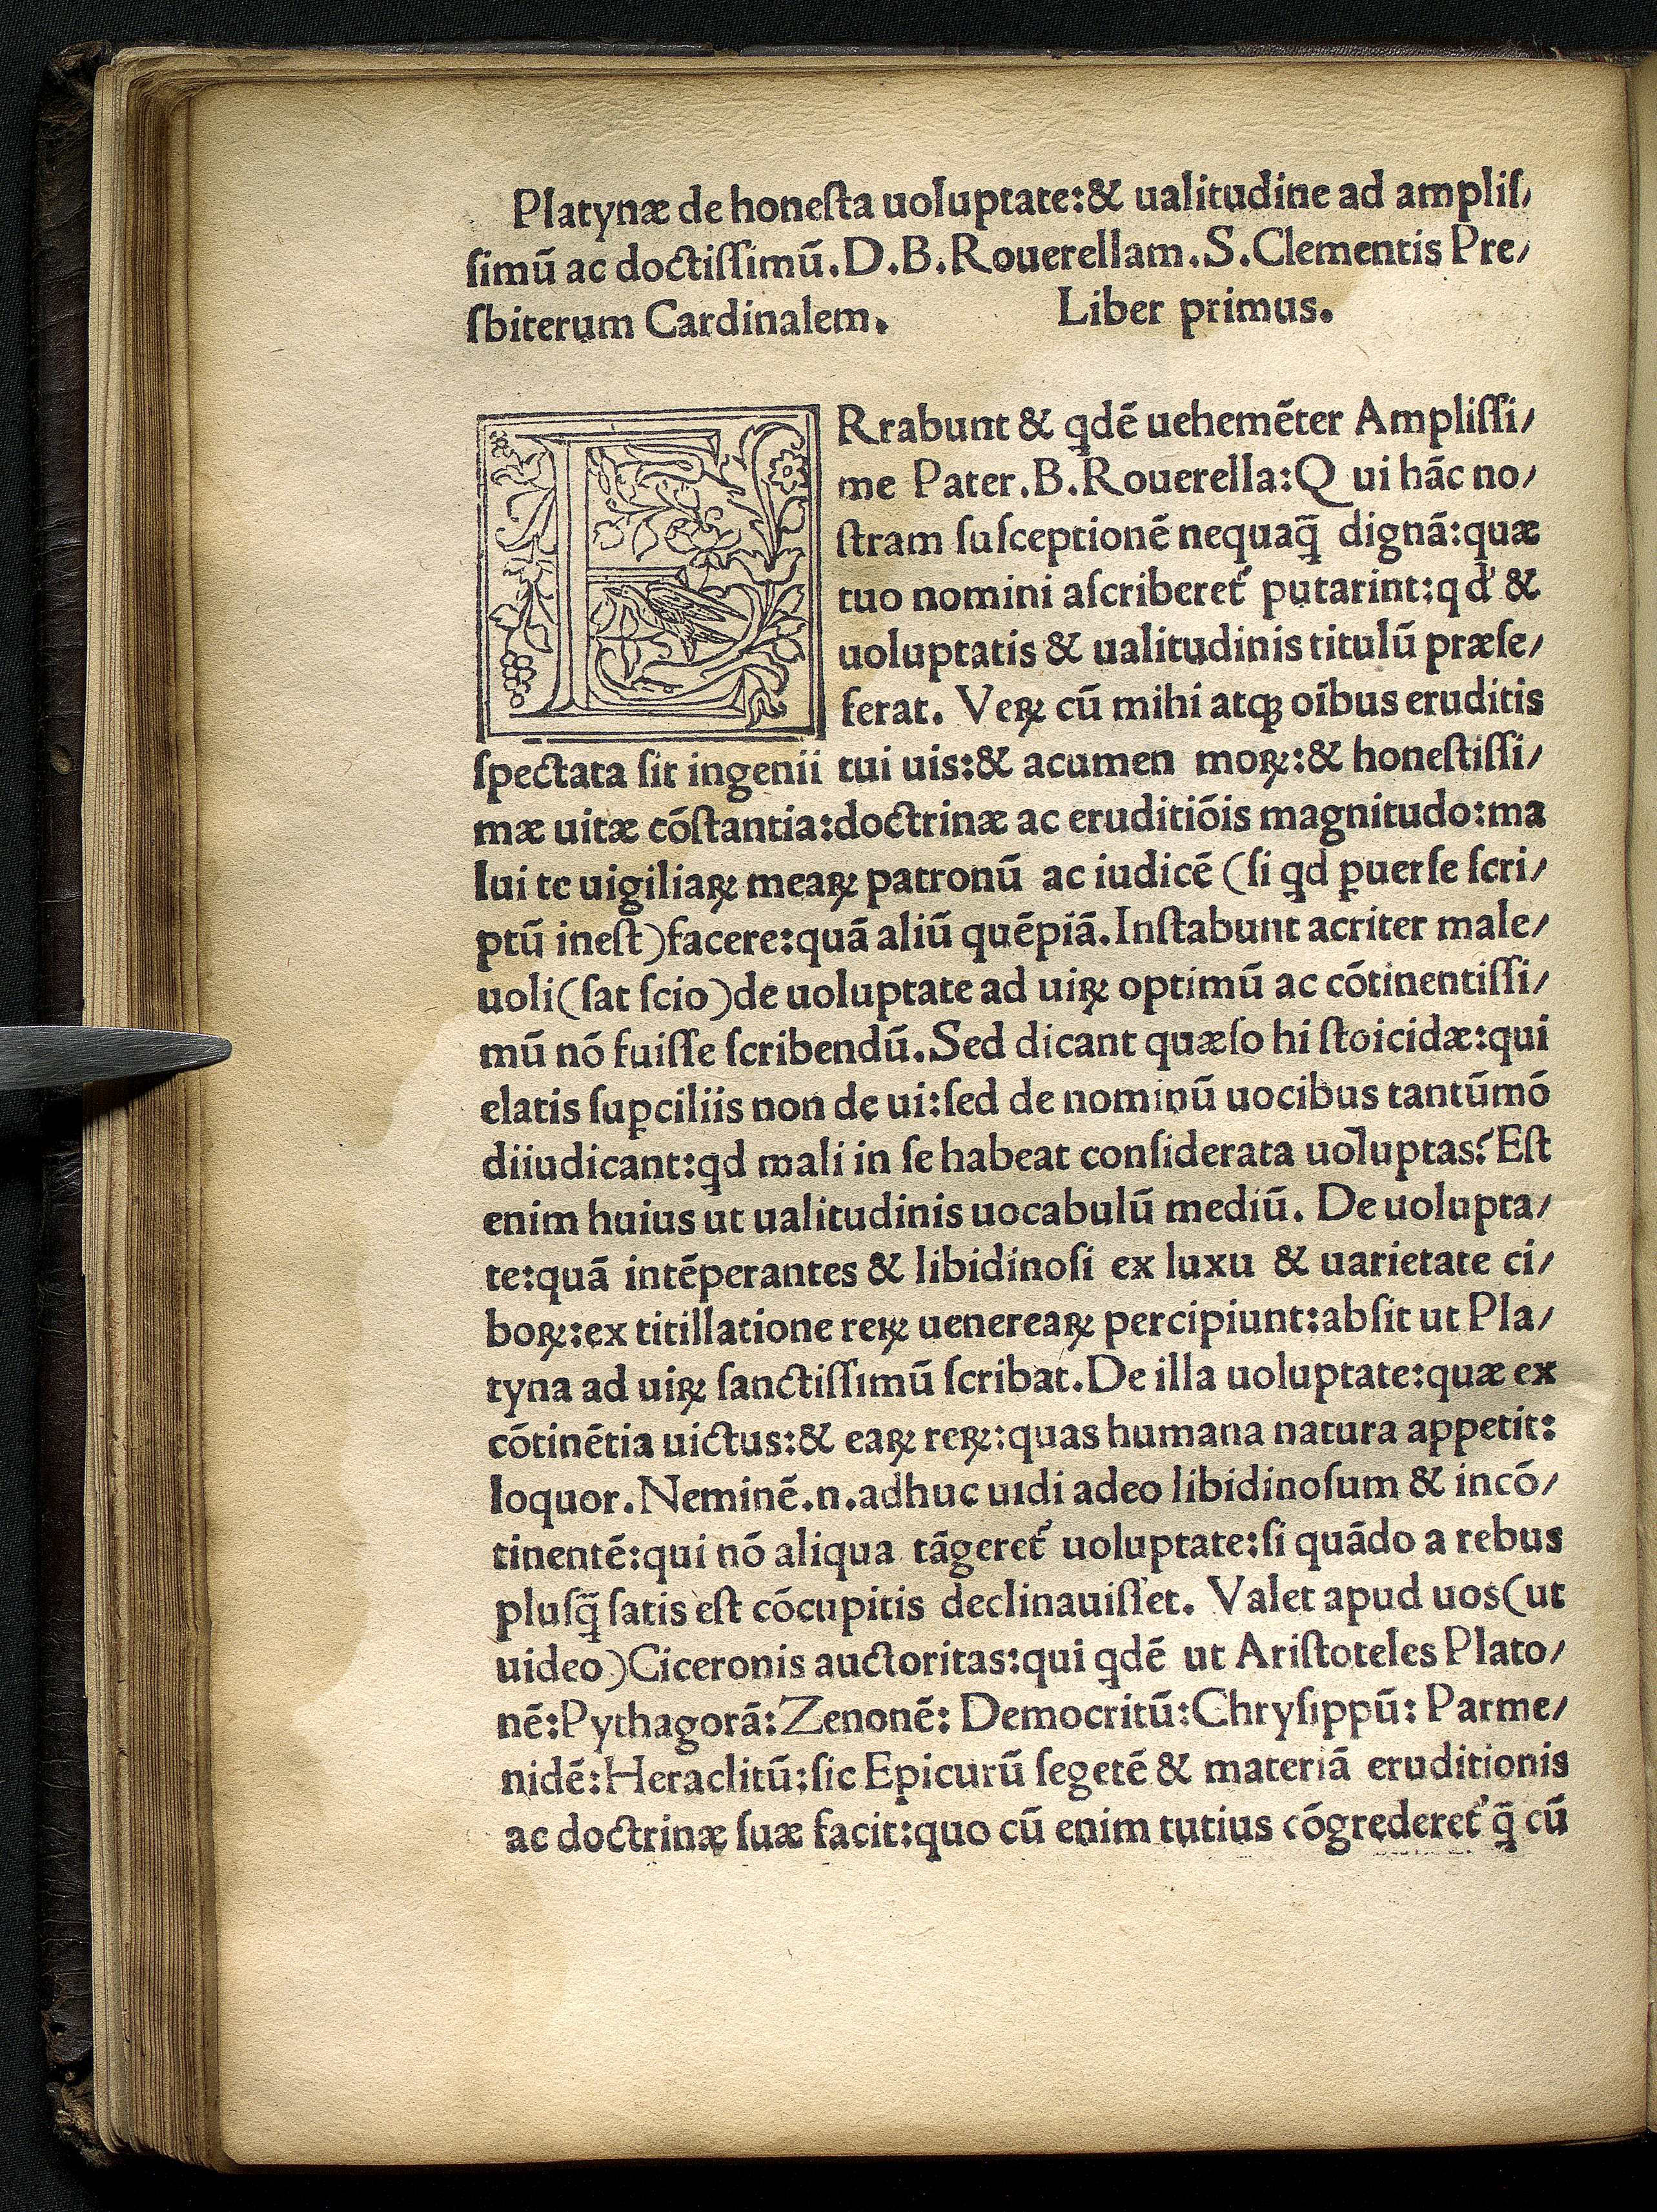 Platynæ de honeſta uoluptate:& ualitudine ad ampliſ/
ſimū ac doctiſſimū.D.B.Rouerellam.S.Clementis Pre/
ſbiterum Cardinalem. Liber primus.
ERrabunt & qdē uehemēter Ampliſſi/
me Pater.B.Rouerella:Q ui hāc no/
ſtram ſuſceptionē nequaq̄ dignā:quæ
tuo nomini aſcriberet᷑ putarint:qd' &
uoluptatis & ualitudinis titulū præſe/
ferat. Veꝝ cū mihi atqꝫ oībus eruditis
ſpectata ſit ingenii tui uis:& acumen moꝝ:& honeſtiſſi/
mæ uitæ cōſtantia:doctrinæ ac eruditiōis magnitudo:ma
lui te uigiliaꝝ meaꝝ patronū ac iudicē (ſi qd ꝑuerſe ſcri/
ptū ineſt)facere:quā aliū quēpiā.Inſtabunt acriter male/
uoli(ſat ſcio)de uoluptate ad uiꝝ optimū ac cōtinentiſſi/
mū nō fuiſſe ſcribendū.Sed dicant quæſo hi ſtoicidæ:qui
elatis ſuꝑciliis non de ui:ſed de nominū uocibus tantūmō
diiudicant:qd mali in ſe habeat conſiderata uoluptas?Eſt
enim huius ut ualitudinis uocabulū mediū. De uolupta/
te:quā intēperantes & libidinoſi ex luxu & uarietate ci/
boꝝ:ex titillatione reꝝ uenereaꝝ percipiunt:abſit ut Pla/
tyna ad uiꝝ ſanctiſſimū ſcribat.De illa uoluptate:quæ ex
cōtinētia uictus:& eaꝝ reꝝ:quas humana natura appetit:
loquor.Neminē.n.adhuc uidi adeo libidinoſum & incō/
tinentē:qui nō aliqua tāgeret᷑ uoluptate:ſi quādo a rebus
pluſq̄ ſatis eſt cōcupitis declinauiſſet. Valet apud uos(ut
uideo)Ciceronis auctoritas:qui qdē ut Ariſtoteles Plato/
nē:Pythagorā:Zenonē: Democritū:Chryſippū: Parme/
nidē:Heraclitū:ſic Epicurū ſegetē & materiā eruditionis
ac doctrinæ ſuæ facit:quo cū enim tutius cōgrederet᷑ q̄ cū